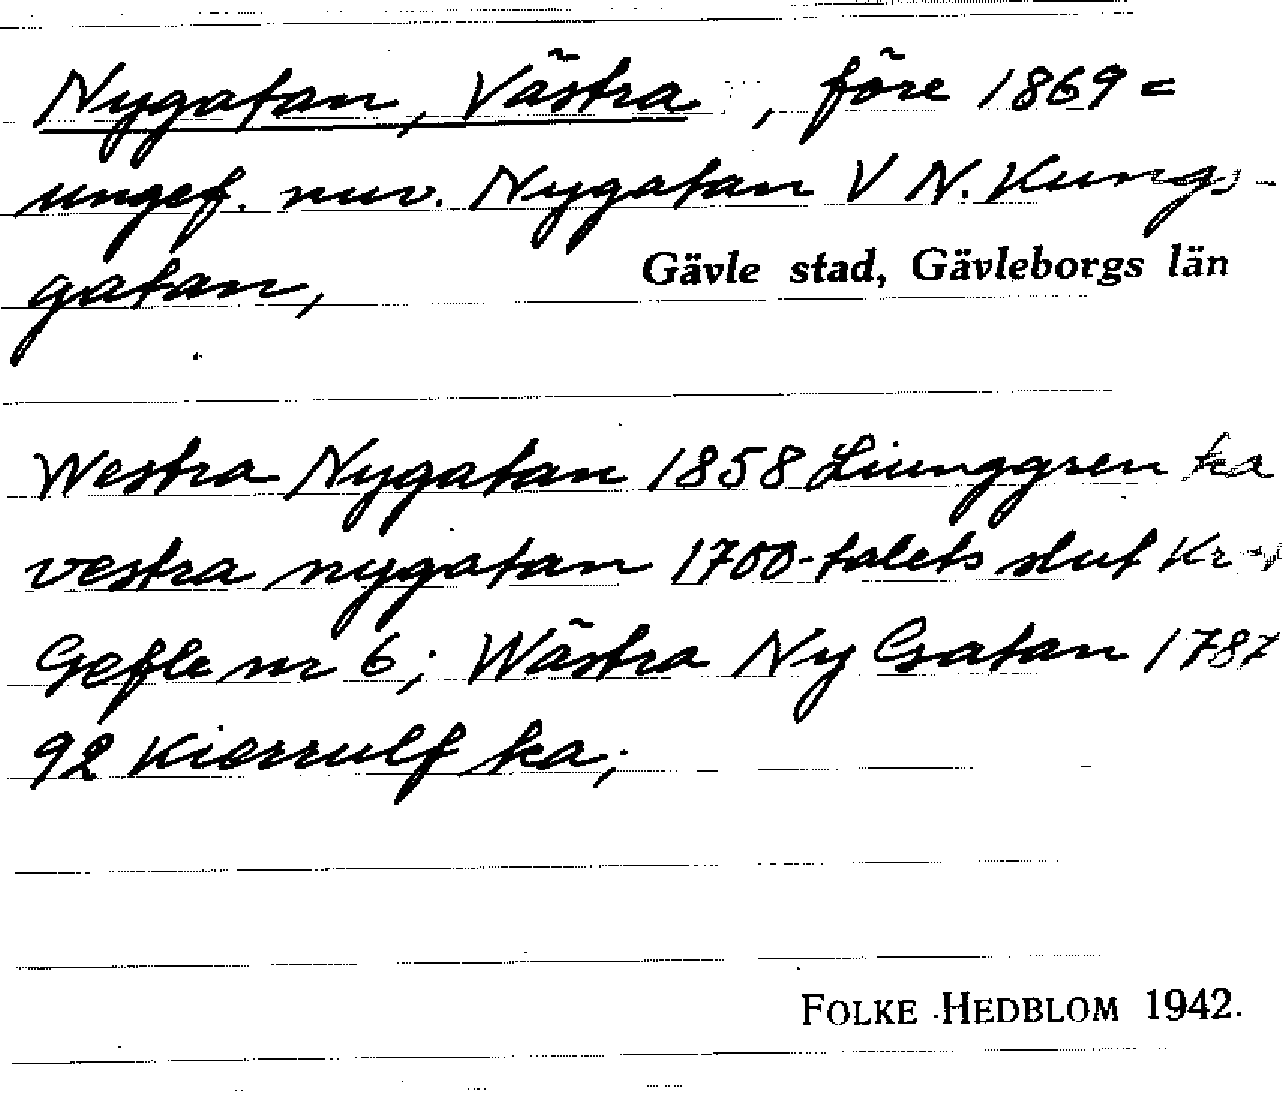 Nygatan, Västra , före 1869 =
ungef. nuv. Nygatan V N. Kungs-
gatan,
Gävle stad, Gävleborgs län
Westra Nygatan 1858 Liunggren ka
vestra nygatan 1700-talets slut
Gefle nr 6; Wästra Ny Gatan 1787
92 Kierrulf ka;
FOLKE HEDBLOM 1942.